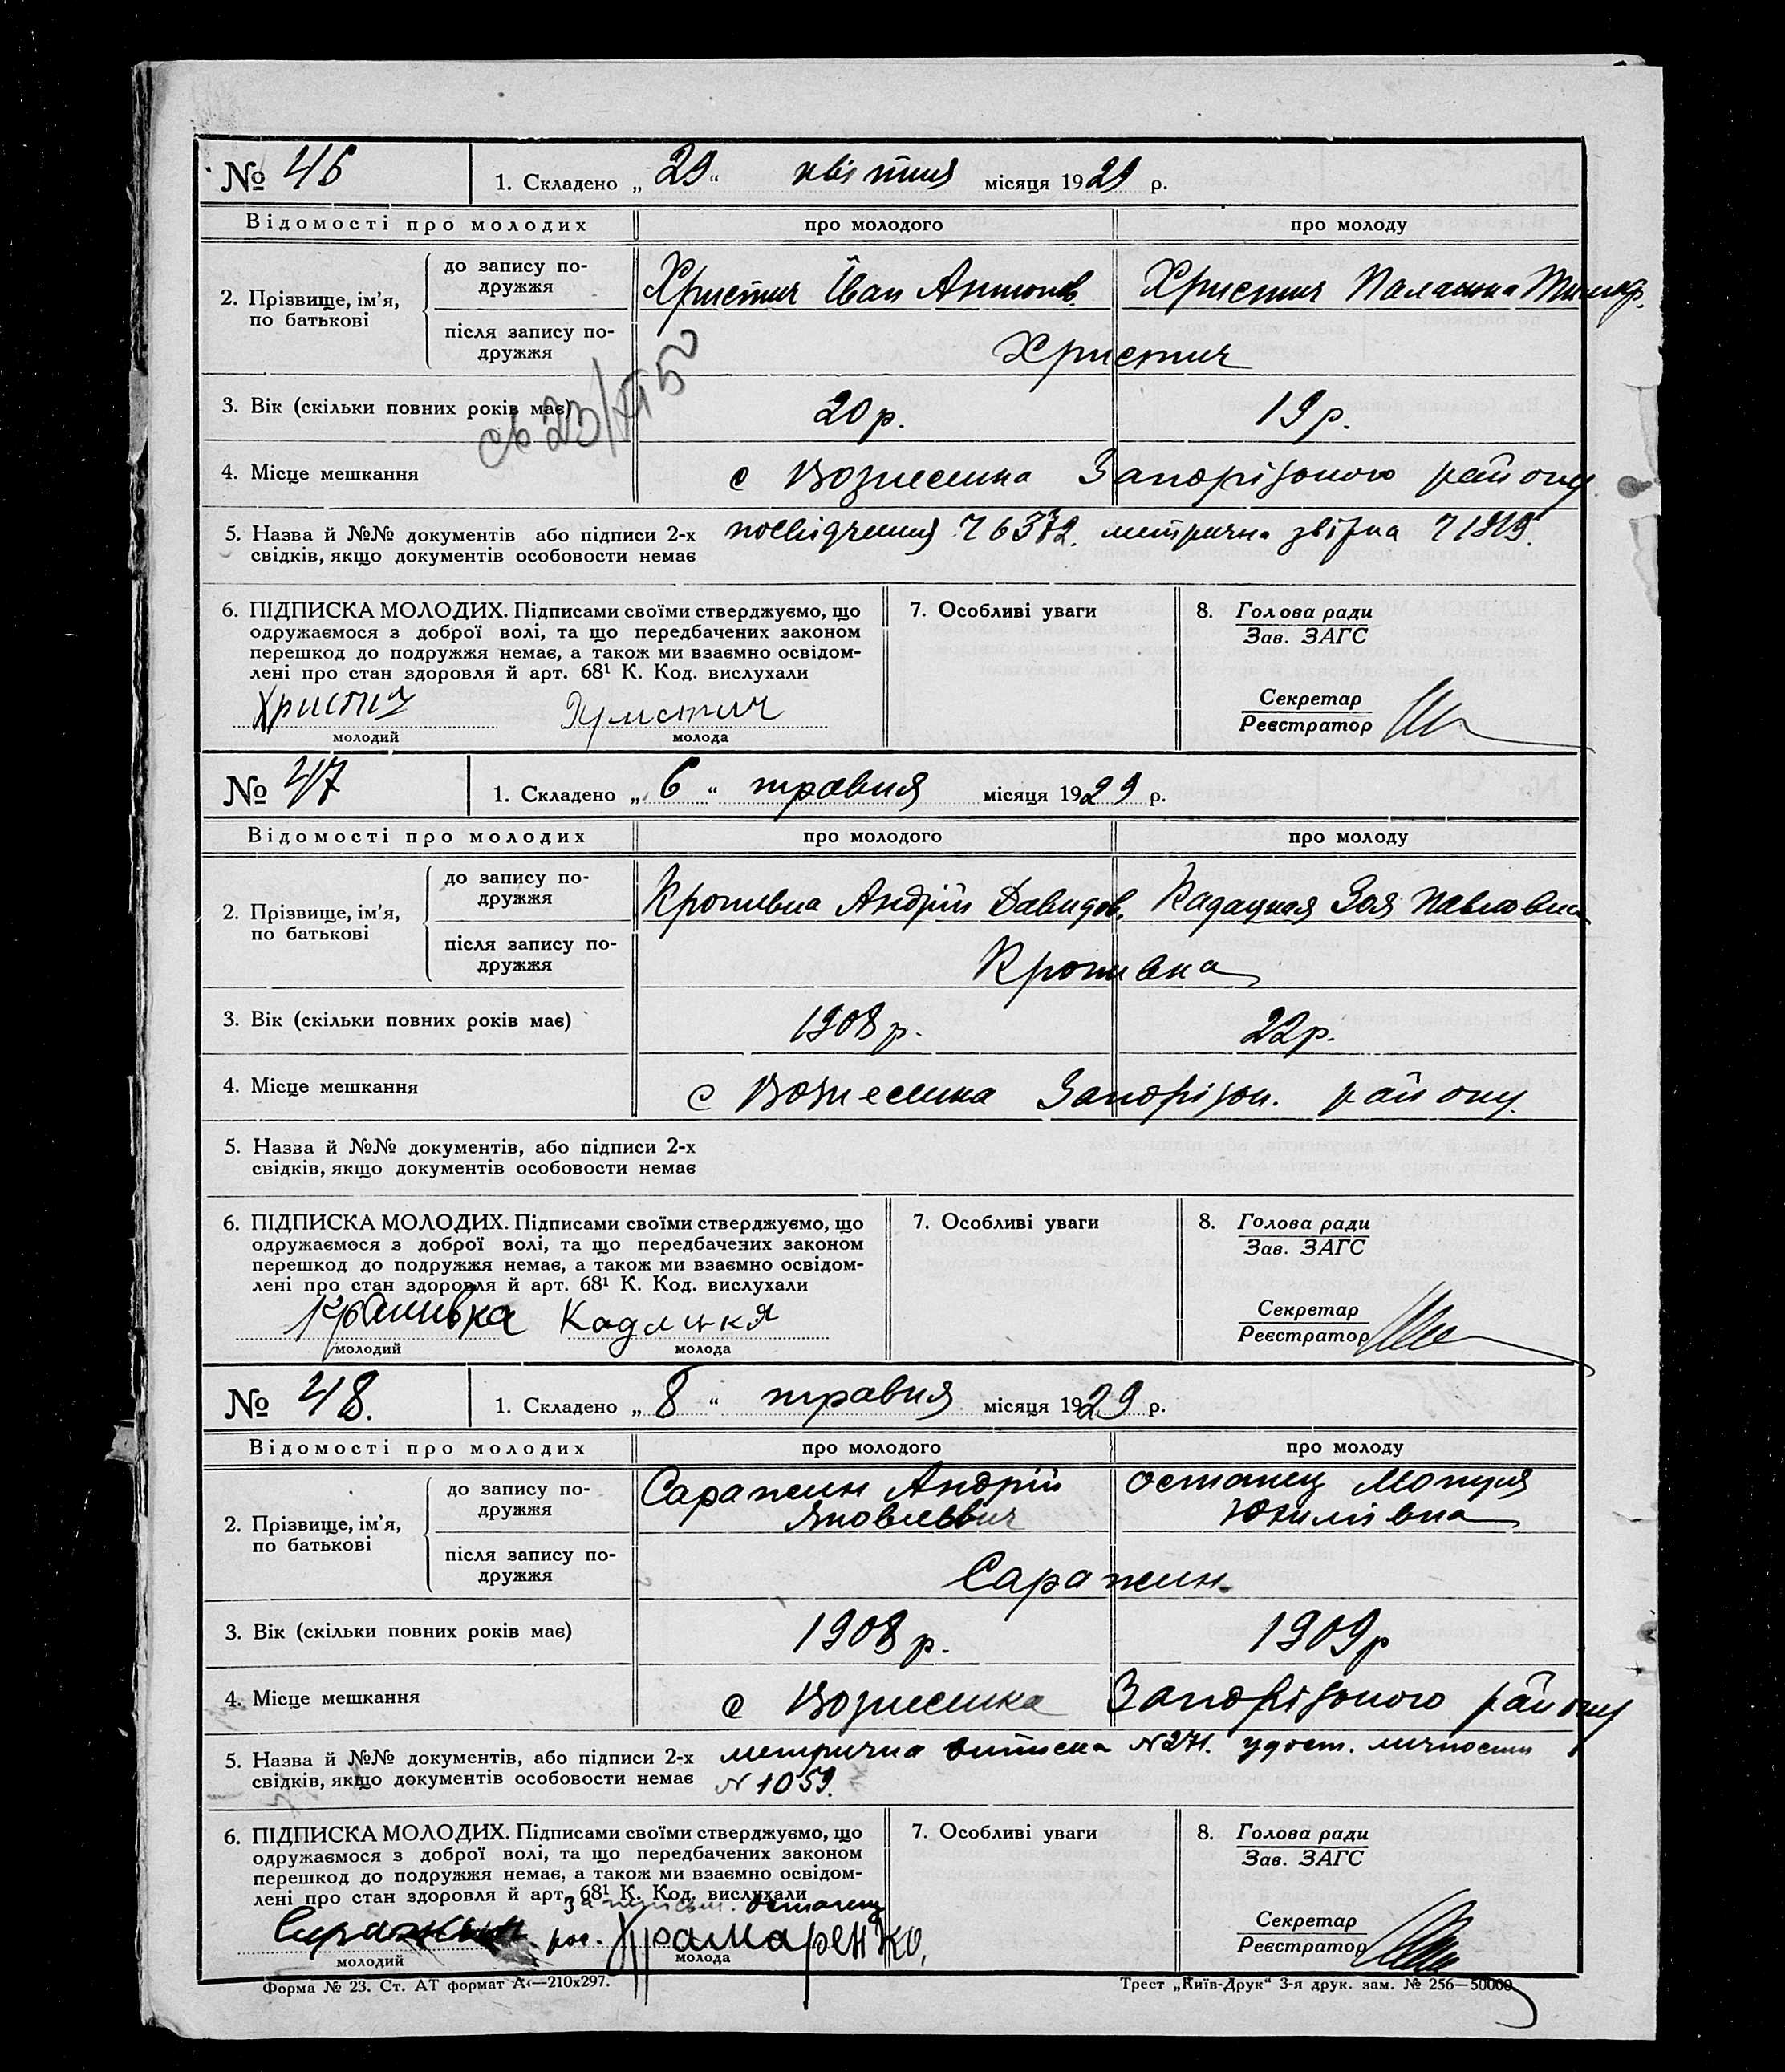 № 46 1. Складено „ 29 “ квітня місяця 1929 р.
Відомості про молодих про молодого про молоду
2. Прізвище, ім'я, по батькові
до запису подружжя Христич Іван Антонов. Христич Палажка
після запису подружжя Христич
3. Вік (скільки повних років має) 20 р. 19 р.
4. Місце мешкання с Вознесенка Запорізького району
5. Назва й №№ документів або підписи 2-х посвідчення 76372. метрична 71819.
свідків, якщо документів особовости немає
6. ПІДПИСКА МОЛОДИХ. Підписами своїми стверджуємо, що
одружаємося з доброї волі, та що передбачених законом
перешкод до подружжя немає, а також ми взаємно освідом-
лені про стан здоровля й арт. 68¹ К. Код. вислухали
Христич Христич
молодий молода
7. Особливі уваги
8. Голова ради
Зав. ЗАГС
Секретар
Реєстратор
№ 47 1. Складено „ 6 “ травня місяця 1929 р.
Відомості про молодих про молодого про молоду
2. Прізвище, ім'я, по батькові
до запису подружжя Кропивка Андрій Давидов. Кадацкая Зоя Павловна
після запису подружжя Кропивка
3. Вік (скільки повних років має) 1908 р. 22 р.
4. Місце мешкання с Вознесенка Запорізьк. району.
5. Назва й №№ документів, або підписи 2-х
свідків, якщо документів особовости немає
6. ПІДПИСКА МОЛОДИХ. Підписами своїми стверджуємо, що
одружаємося з доброї волі, та що передбачених законом
перешкод до подружжя немає, а також ми взаємно освідом-
лені про стан здоровля й арт. 68¹ К. Код. вислухали
Крапивка Кадацкя
молодий молода
7. Особливі уваги
8. Голова ради
Зав. ЗАГС
Секретар
Реєстратор
№ 48. 1. Складено „ 8 “ травня місяця 1929 р.
Відомості про молодих про молодого про молоду
2. Прізвище, ім'я, по батькові
до запису подружжя Саражин Андрій Яковлевич Останец Мотря
після запису подружжя Саражин.
3. Вік (скільки повних років має) 1908 р. 1909 р
4. Місце мешкання с Вознесенка Запорізького району
5. Назва й №№ документів, або підписи 2-х метрична витиска № 271. удост. личности
свідків, якщо документів особовости немає № 1059.
6. ПІДПИСКА МОЛОДИХ. Підписами своїми стверджуємо, що
одружаємося з доброї волі, та що передбачених законом
перешкод до подружжя немає, а також ми взаємно освідом-
лені про стан здоровля й арт. 68¹ К. Код. вислухали
Останец
Саражин рос. Храмаренко,
молодий молода
7. Особливі уваги
8. Голова ради
Зав. ЗАГС
Секретар
Реєстратор
Форма № 23. Ст. АТ формат А₄—210x297. Трест „Київ-Друк“ 3-я друк. зам. № 256—50000